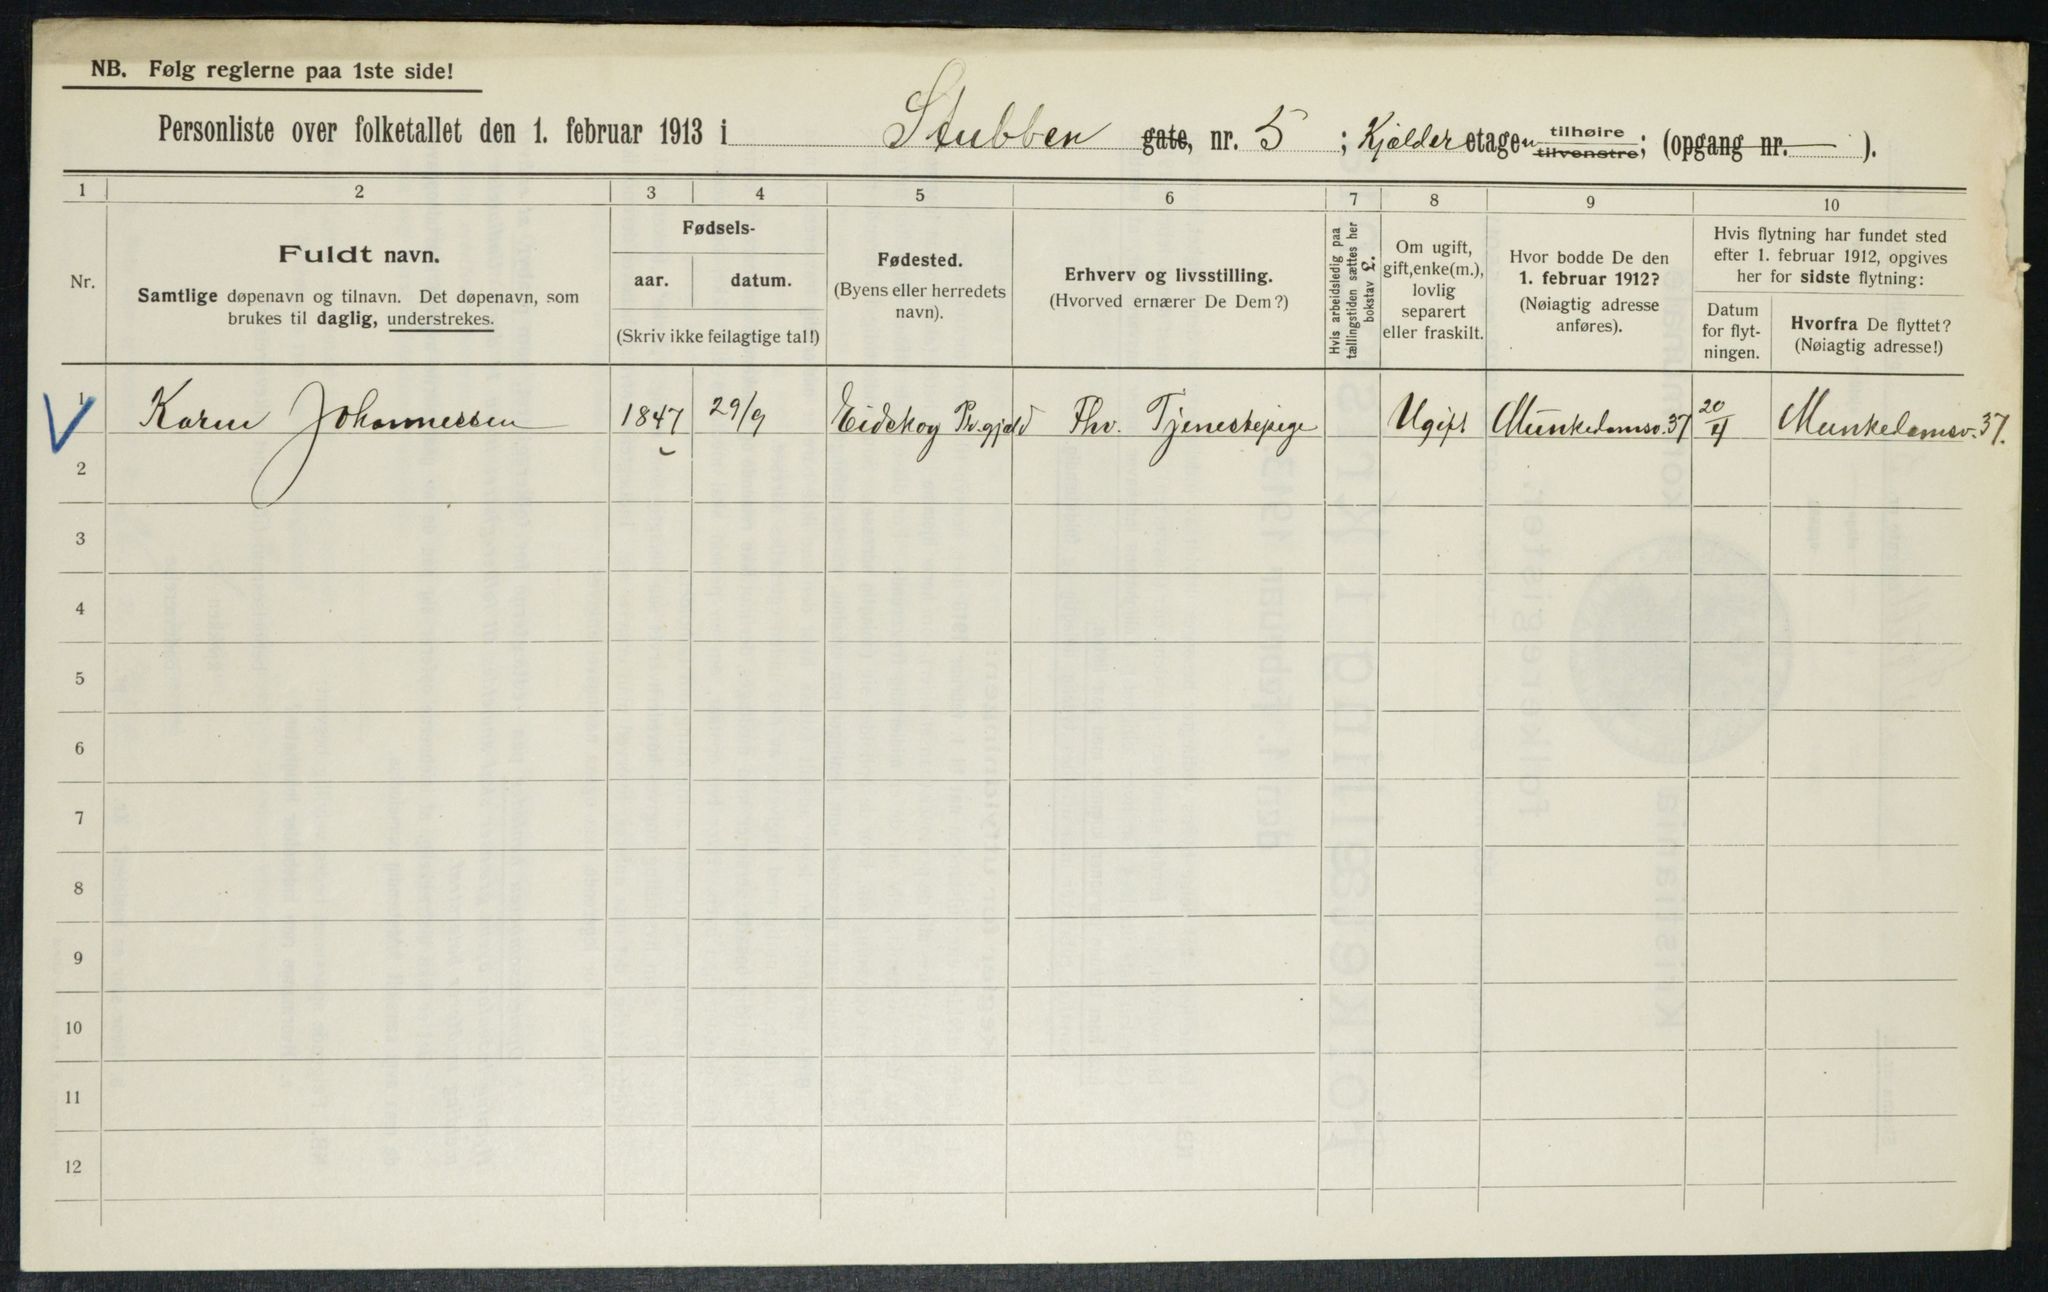 NB. Følg reglerne paa 1ste side!
Personliste over folketallet den 1. februar 1913 i Stubben gate, nr. 5 ; Kjælder etagen tilhøire tilvenstre; (opgang nr. — ).
1 2 3 4 5 6 7 8 9 10
Nr.
Fuldt navn.
Samtlige døpenavn og tilnavn. Det døpenavn, som
brukes til daglig, understrekes.
Fødsels-
aar. datum.
(Skriv ikke feilagtige tal!)
Fødested.
(Byens eller herredets
navn).
Erhverv og livsstilling.
(Hvorved ernærer De Dem?)
Hvis arbeidsledig paa
tællingstiden sættes her
bokstav L.
Om ugift,
gift, enke(m.),
lovlig
separert
eller fraskilt.
Hvor bodde De den
1. februar 1912?
(Nøiagtig adresse
anføres).
Hvis flytning har fundet sted
efter 1. februar 1912, opgives
her for sidste flytning:
Datum
for flyt-
ningen.
Hvorfra De flyttet?
(Nøiagtig adresse!)
1 Karen Johannessen 1847 29/9 Eidskog Prgjeld Fhv. Tjenestepige Ugift Munkedamsv. 37 20/4 Munkedamsv. 37.
2
3
4
5
6
7
8
9
10
11
12